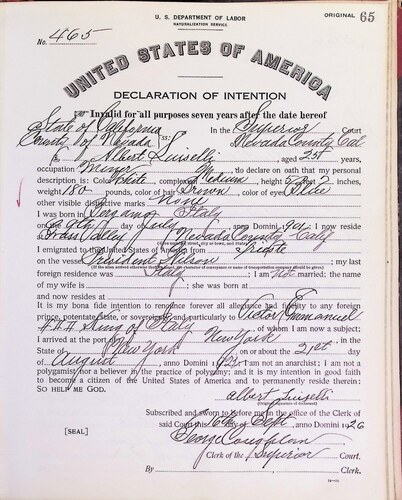 U. S. DEPARTMENT OF LABOR
NATURALIZATION SERVICE
ORIGINAL 65
No. 465
UNITED STATES OF AMERICA
DECLARATION OF INTENTION
Invalid for all purposes seven years after the date hereof
State of California
In the Superior Court
County of Nevada ss: Nevada County Cal
I, Albert Luiselli, aged 25 years,
occupation Miner, do declare on oath that my personal
description is: Color White, complexion Medium, height 5 feet 2 inches,
weight 180 pounds, color of hair Brown, color of eyes Blue
other visible distinctive marks None
I was born in Bergamo Italy
on the day of July, anno Domini 1901; I now reside
at Grass Valley Nevada County Calif
I emigrated to the United States of America from Trieste
on the vessel President Wilson; my last
foreign residence was Italy; I am not married; the name
of my wife is; she was born at
and now resides at
It is my bona fide intention to renounce forever all allegiance and fidelity to any foreign
prince, potentate, state, or sovereignty, and particularly to Victor Emmanuel
III King of Italy, of whom I am now a subject;
I arrived at the port of New York, in the
State of New York, on or about the 21st day
of August, anno Domini; I am not an anarchist; I am not a
polygamist nor a believer in the practice of polygamy; and it is my intention in good faith
to become a citizen of the United States of America and to permanently reside therein:
SO HELP ME GOD.
Albert Luiselli
(Original signature of declarant)
Subscribed and sworn to before me in the office of the Clerk of
said Court this 16th day of Sept, anno Domini 1926
[SEAL]
George Coughlan
Clerk of the Superior Court.
By, Clerk.